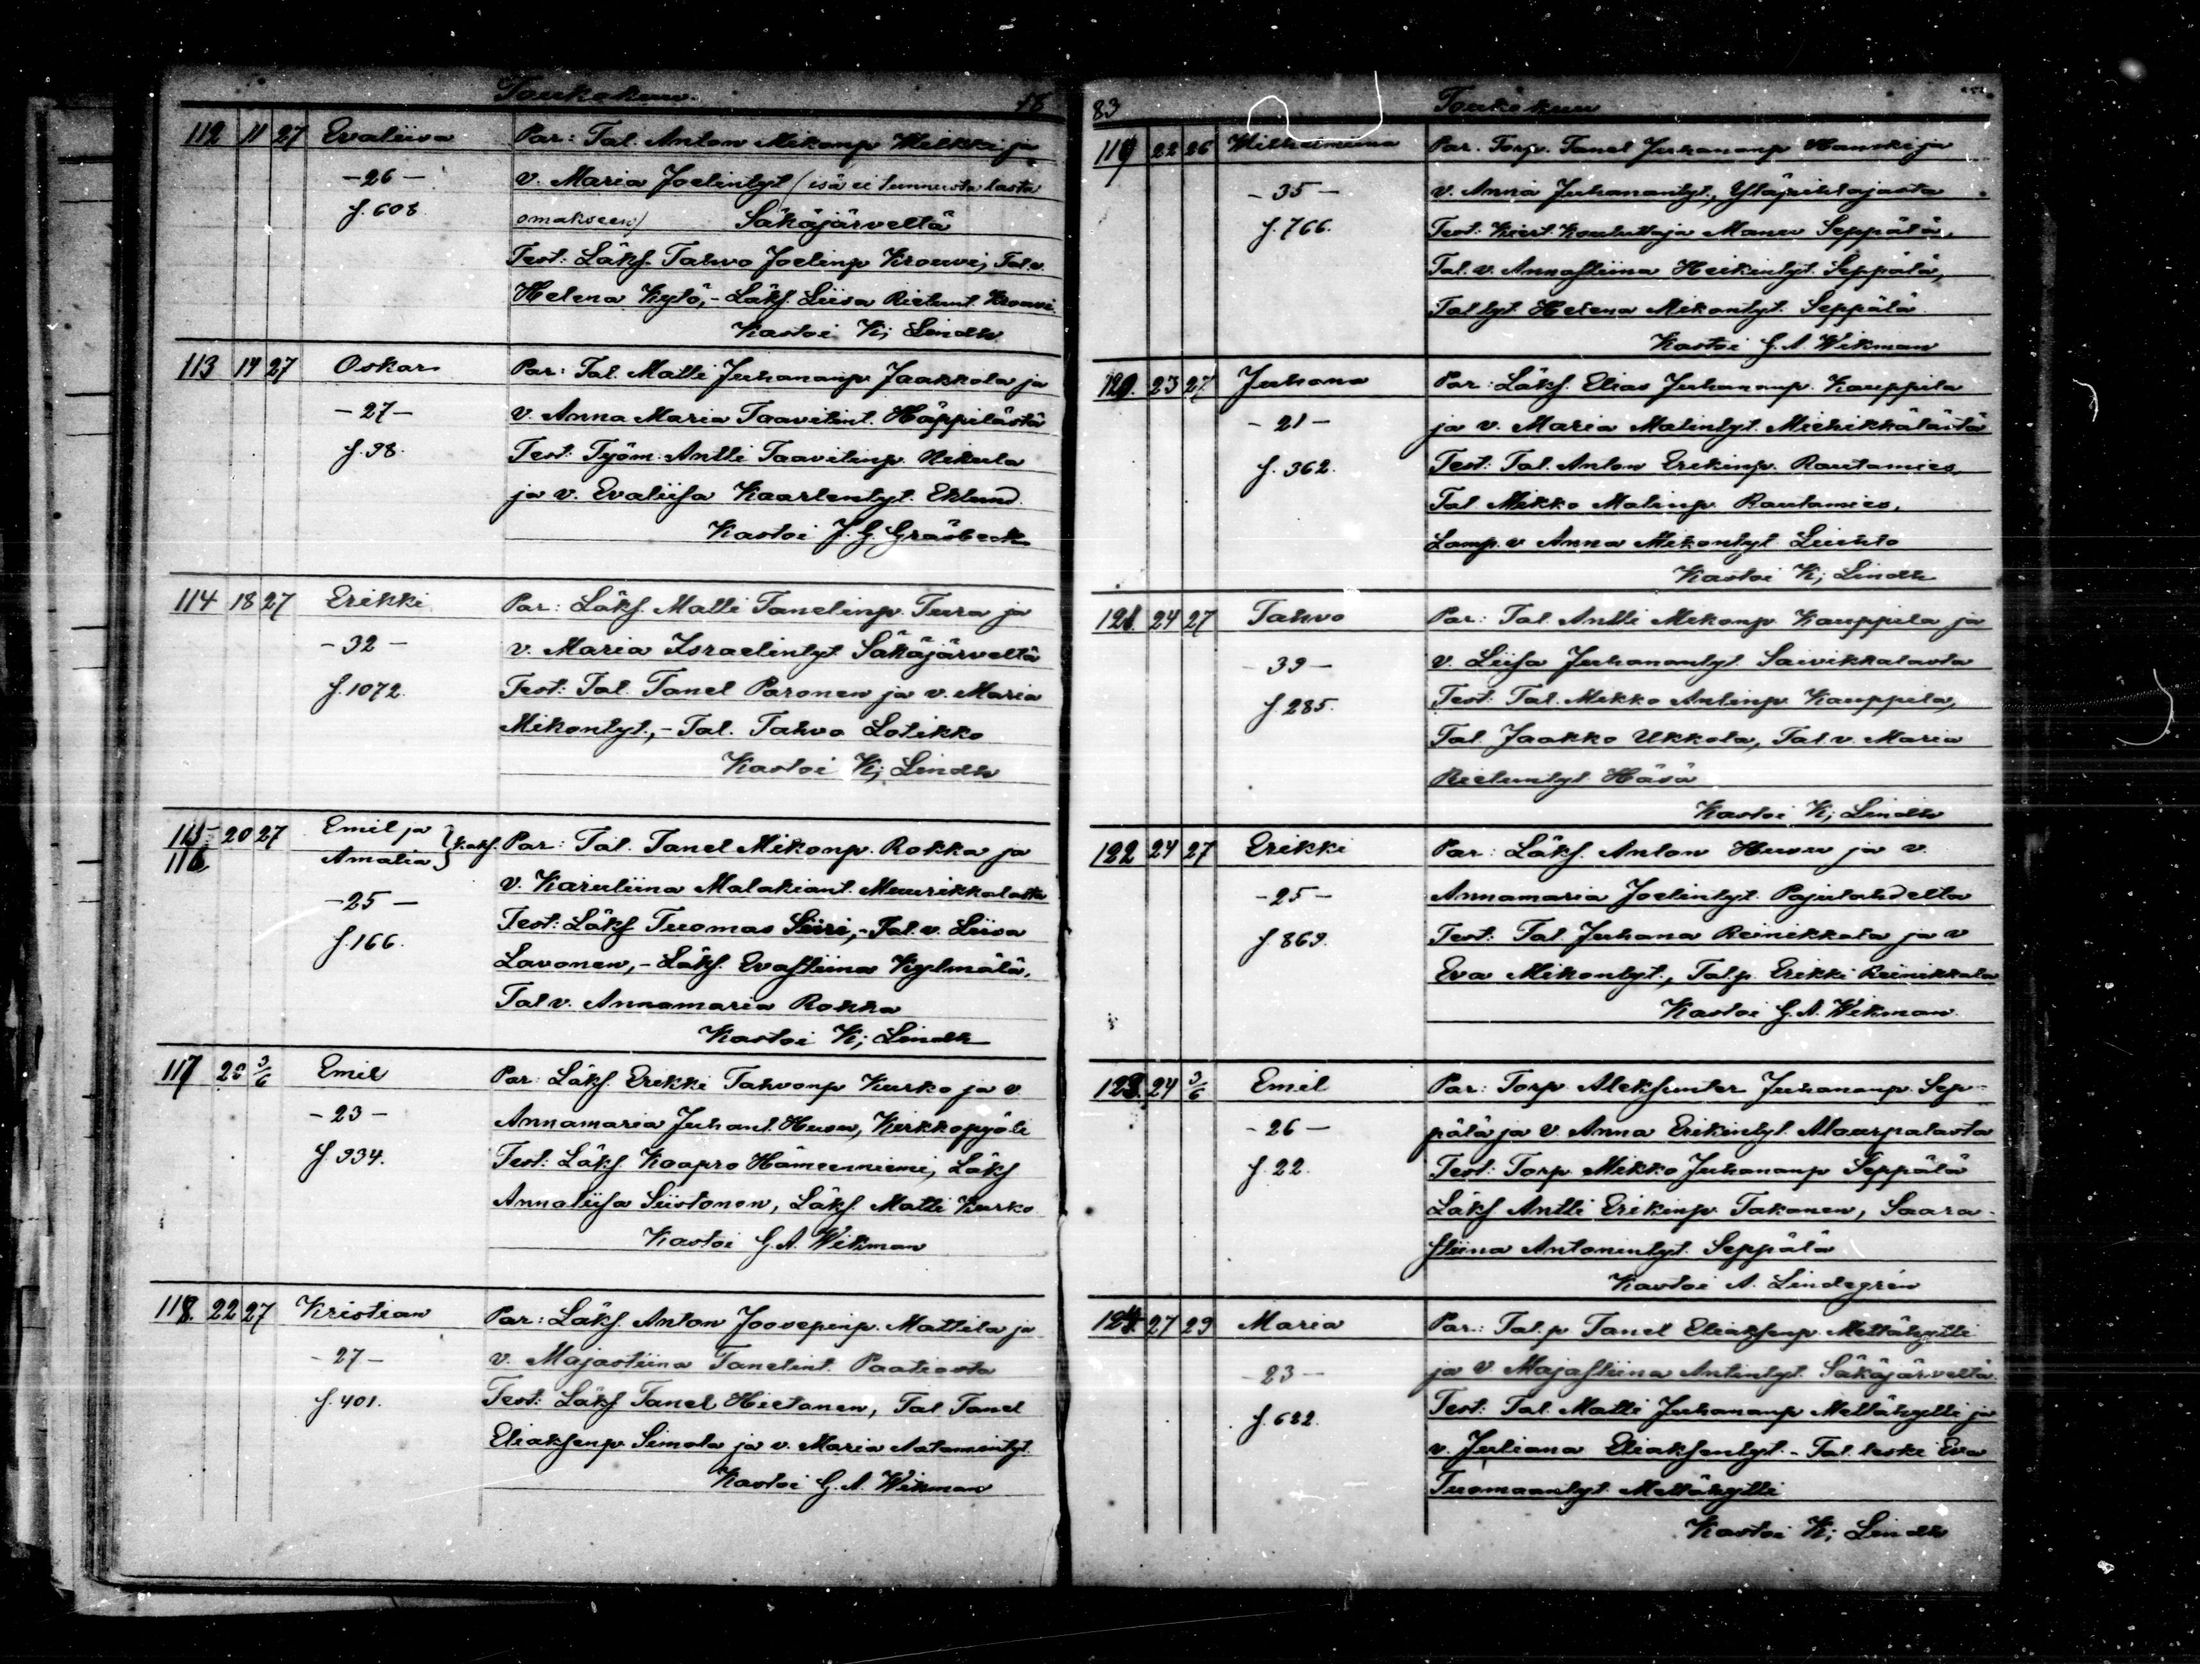 Toukokuu. 18
112 11 27 Evaliisa Par: Tal. Anton Mikonp. Meikka ja
-26- v. Maria Joelintyt. (isä ei tunnusta lasta
f. 608. omakseen) Säkäjärveltä
Test: Läks. Tahvo Joelinp Krouvi, Tal. v.
Helena Kytö,- Läks. Liisa Rietunt. Krouvi.
Kastoi K; Lindh
113 14 27 Oskar Par: Tal. Matti Juhananp. Jaakkola ja
-27- v. Anna Maria Taavitint. Häppilästä
f. 98. Test: Työm. Antti Taavitinp. Nikula
ja v. Evaliisa Kaarlentyt. Eklund.
Kastoi J. G. Gräsbeck
114 18 27 Erikki Par: Läks. Matti Tanelinp. Tura ja
-32- v. Maria Israelintyt. Säkäjärveltä
f. 1072. Test: Tal. Tanel Paronen ja v. Maria
Mikontyt.,- Tal. Tahvo Lotikko
Kastoi K; Lindh
115 20 27 Emil ja } Kaks. Par: Tal. Tanel Mikonp. Rokka ja
116 Amalia
-25- v. Karuliina Malakiant. Muurikkalasta
f. 166. Test: Läks Tuomas Siiri,- Tal. v. Liisa
Lavonen,- Läks. Evastiina Kylmälä,
Tal v. Annamaria Rokka
Kastoi K; Lindh
117 20 3/6 Emil Par: Läks. Erikki Tahvonp Kurko ja v
-23- Annamaria Juhant. Husu, Kirkkopyöli
f 934. Test: Läks. Kaapro Hämeenniemi, Läks
Annaliisa Siistonen, Läks. Matti Kurko
Kastoi G. A. Wikman
118. 22 27 Kristian Par: Läks. Anton Joosepinp. Mattila ja
-27- v. Majastiina Tanelint. Paatiosta
f. 401. Test: Läks Tanel Hietanen, Tal Tanel
Eliaksenp. Simola ja v. Maria Aatamintyt.
Kastoi G. A. Wikman
83 Toukokuu
119 22 26 Wilhelmiina Par. Torp. Tanel Juhananp Hanski ja
-35- v. Anna Juhanantyt., Yläpihlajasta
f. 766. Test: Kiert. Kouluttaja Manu Seppälä,
Tal. v. Annastiina Heikintyt. Seppälä,
Tal tyt. Helena Mikontyt. Seppälä
Kastoi G. A. Wikman
120. 23 27 Juhana Par: Läks. Elias Juhananp. Kauppila
-21- ja v. Maria Matintyt. Miehikkälästä
f. 362. Test: Tal. Anton Erikinp. Rautamies,
Tal Mikko Matinp. Rautamies,
Lamp. v Anna Mikontyt Liuhto
Kastoi K; Lindh
121. 24 27 Tahvo Par: Tal. Antti Mikonp. Kauppila ja
39- v. Liisa Juhanantyt. Saivikkalasta
f 285. Test: Tal. Mikko Antinp. Kauppila,
Tal Jaakko Ukkola, Tal. v. Maria
Rietuntyt. Häsä
Kastoi K; Lindh
122 24 27 Erikki Par: Läks. Anton Husu ja v.
-25- Annamaria Joelintyt. Pajulahdelta
f 869. Test: Tal. Juhana Reinikkala ja v
Eva Mikontyt., Tal. p. Erikki Reinikkala
Kastoi G. A. Wikman.
123. 24 3/6 Emil Par: Torp Aleksanter Juhananp. Sep-
-26- pälä ja v. Anna Erikintyt. Alaurpalasta
f. 22. Test: Torp Mikko Juhananp Seppälä
Läks Antti Erikinp. Takanen, Saara-
stiina Antonintyt. Seppälä
Kastoi A. Lindegrén
124. 27 29 Maria Par: Tal. p Tanel Eliaksenp. Mettähylli
23- ja v. Majastiina Antintyt. Säkäjärveltä
f. 622. Test: Tal. Matti Juhananp Mettähylli ja
v. Juliana Eliaksentyt.- Tal. leski Eva
Tuomaantyt. Mettähylli
Kastoi K; Lindh